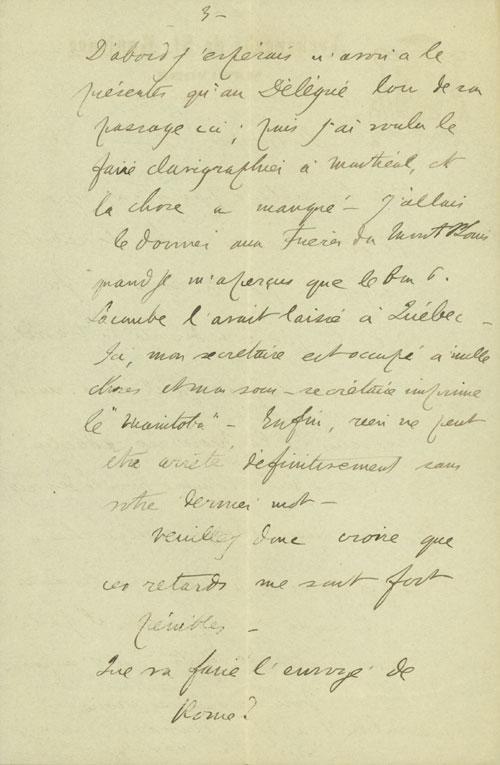 3-
D'abord j'espérais n'avoir à le
présenter qu'au Délégué lors de son
passage ici ; puis j'ai voulu le
faire clavigraphier à Montréal, et
la chose a manqué - j'allais
le donner aux Frères du Mont St Louis
quand je m'aperçus que le bon P.
Lacombe l'avait laissé à Québec -
Ici, mon secrétaire est occupé à mille
choses et mon sous-secrétaire imprime
le "Manitoba" - Enfin, rien ne peut
être arrêté définitivement sans
votre dernier mot -
Veuillez donc croire que
ces retards me sont fort
pénibles -
Que va faire l'envoyé de
Rome?